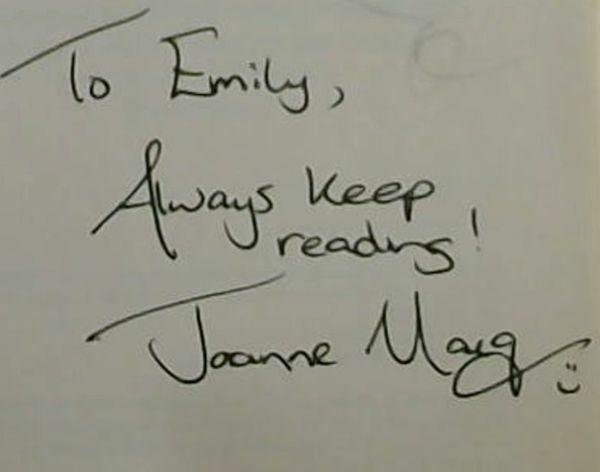 To Emily,
Always keep
reading!
Joanne
:)